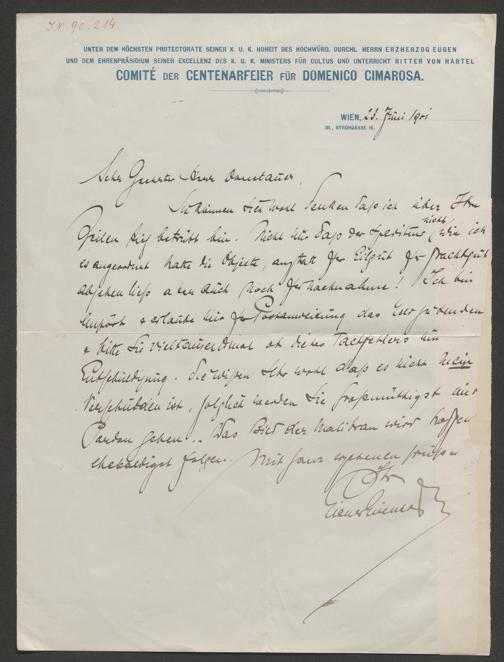 I.N. 90.214
UNTER DEM HÖCHSTEN PROTECTORATE SEINER K. U. K. HOHEIT DES HOCHWÜRD. DURCHL. HERRN ERZHERZOG EUGEN
UND DEM EHRENPRÄSIDIUM SEINER EXCELLENZ DES K. U. K. MINISTERS FÜR CULTUS UND UNTERRICHT RITTER VON HARTEL
COMITÉ DER CENTENARFEIER FÜR DOMENICO CIMAROSA.
WIEN, 23. Juni 1901
III., STROHGASSE
Sehr Geehrter Herr
Sie können sich wohl denken daß ich über Ihre
Zeilen tief betrübt bin. Nicht nur daß der Spediteur nicht, wie ich
es angeordnet hatte die Objecte, anstatt per Eilgut per Frachtgut
abgehen ließ allein auch noch per Nachnahme! Ich bin
empört & erlaube mir per Postanweisung das
& bitte Sie vieltausendmal ob dieses um
Entschuldigung. Sie wissen sehr wohl daß es nicht mein
Verschulden ist, folglich werden Sie großmüthigst mir
Pardon geben .. Das Bild der Malibran wird hoffen
ehebaldigst folgen. Mit ganz ergebenen Grüßen
Ihr